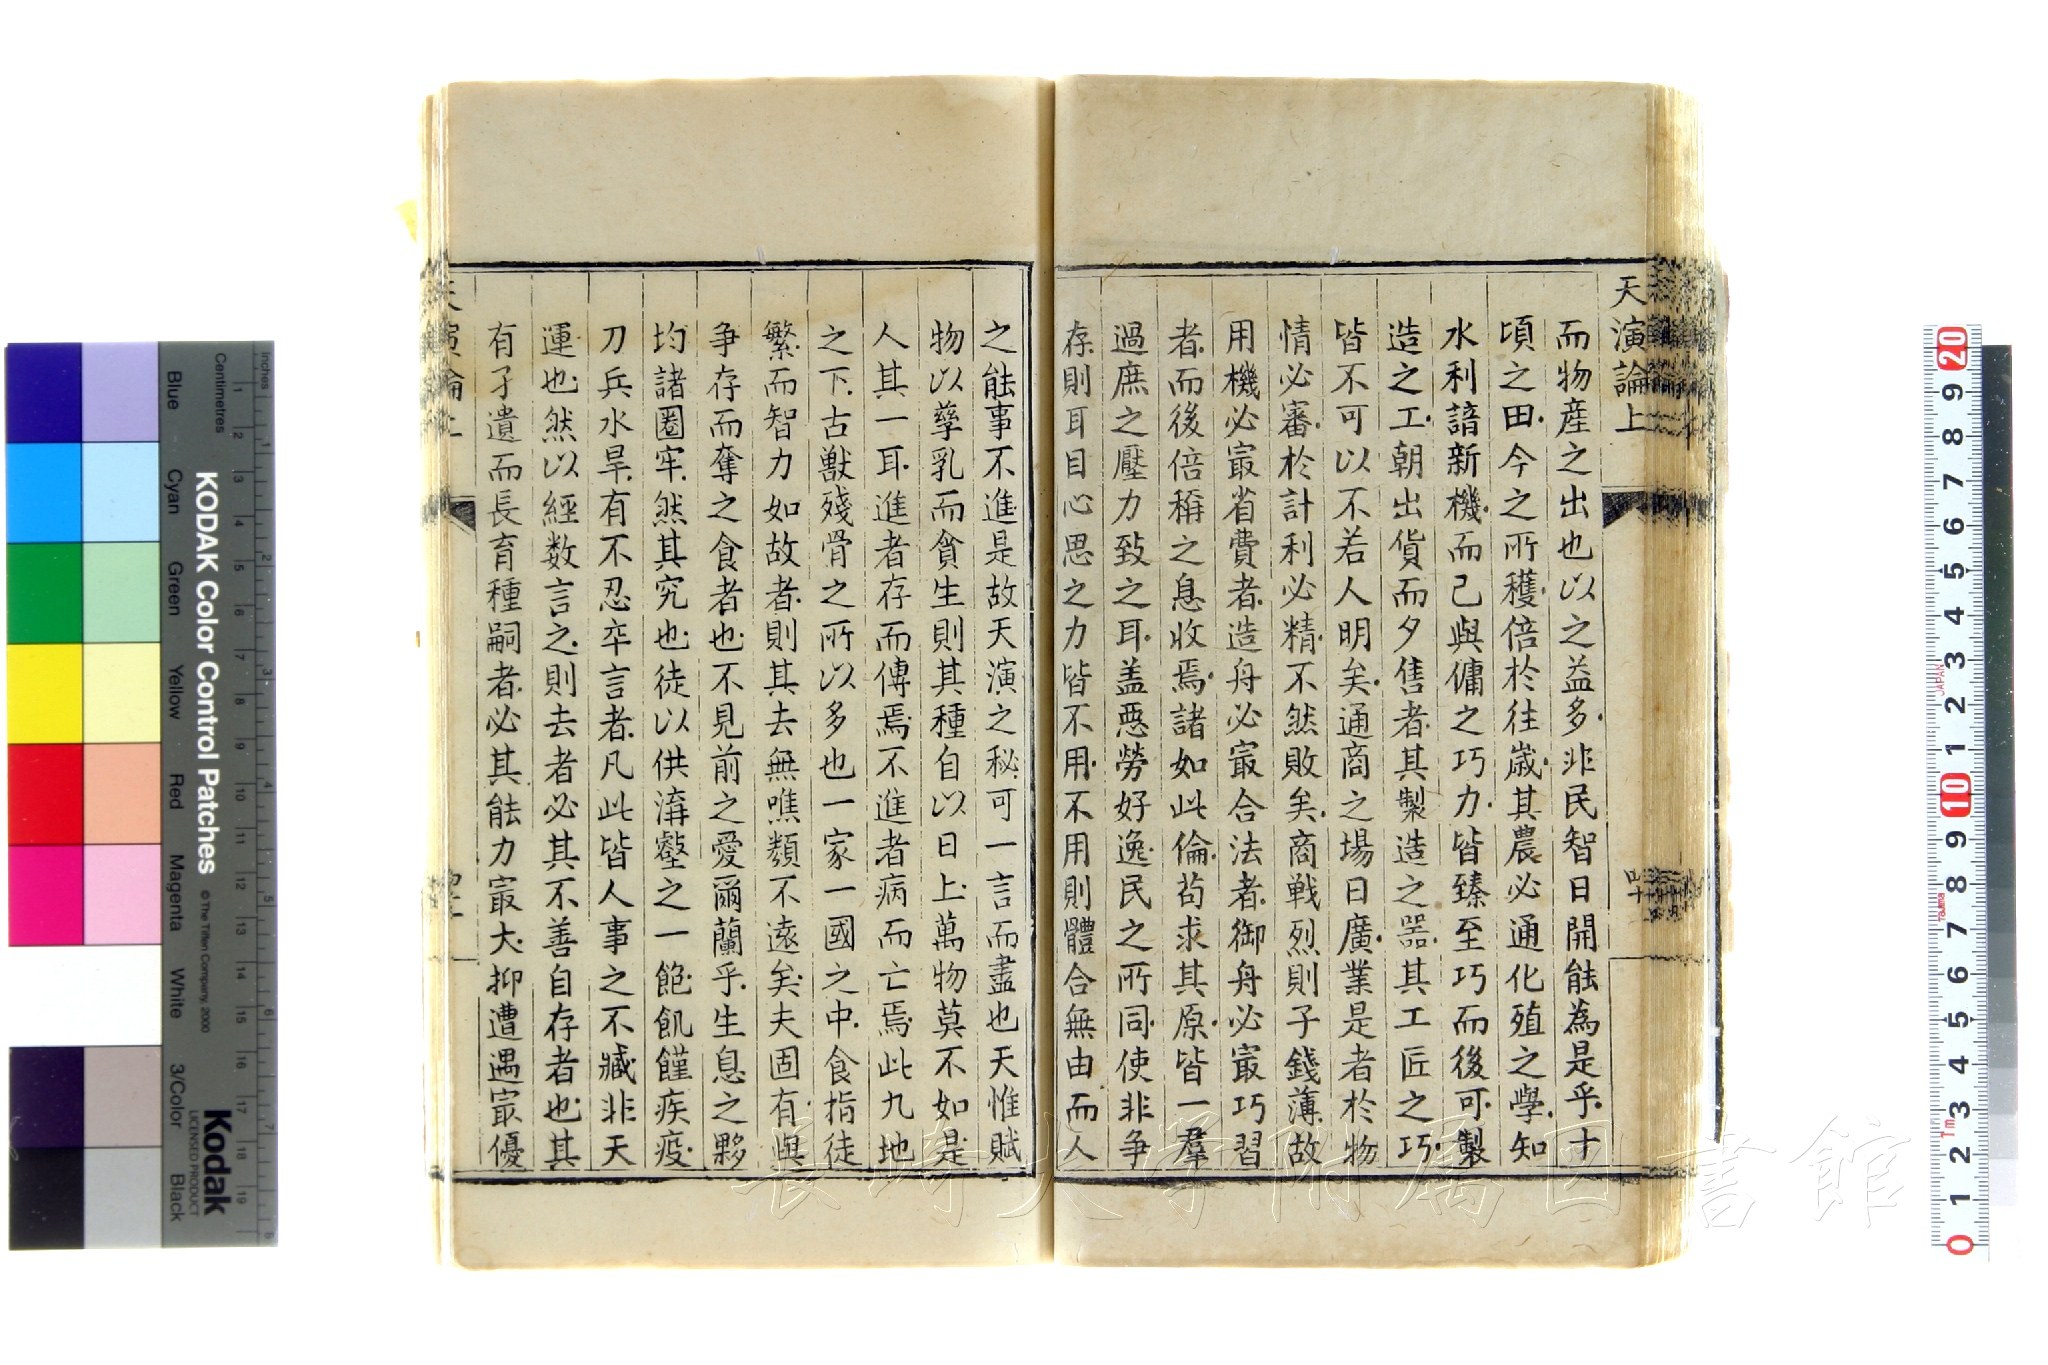 天演論上
而物產之出也以之益多非民智日開能為是乎十
頃之田今之所穫倍於往歲其農必通化殖之學知
水利諳新機而己與傭之巧力皆臻至巧而後可製
造之工朝出貨而夕售者其製造之器其工匠之巧
皆不可以不若人明矣通商之場日廣業是者於物
情必審於計利必精不然敗矣商戰烈則子錢薄故
用機必最省費者造舟必最合法者御舟必最巧習
者而後倍稱之息收焉諸如此倫苟求其原皆一羣
過庶之壓力致之耳盖惡勞好逸民之所同使非爭
存則耳目心思之力皆不用不用則體合無由而人
四十
之能事不進是故天演之秘可一言而盡也天惟賦
物以孳乳而貪生則其種自以日上萬物莫不如是
人其一耳進者存而傳焉不進者病而亡焉此九地
之下古獸殘骨之所以多也一家一國之中食指徒
繁而智力如故者則其去無噍類不遠矣夫固有與
争存而奪之食者也不見前之愛爾蘭乎生息之夥
均諸圈牢然其究也徒以供溝壑之一飽飢饉疾疫
刀兵水旱有不忍卒言者凡此皆人事之不臧非天
運也然以經数言之則去者必其不善自存者也其
有孑遺而長育種嗣者必其能力最大抑遭遇最優
長崎大学附属図書館
KODAK Color Control Patches
© The Tiffen Company, 2000
Kodak
LICENSED PRODUCT
Inches
Centimetres
Blue
Cyan
Green
Yellow
Red
Magenta
White
3/Color
Black
JAPAN
Tajima
Tm